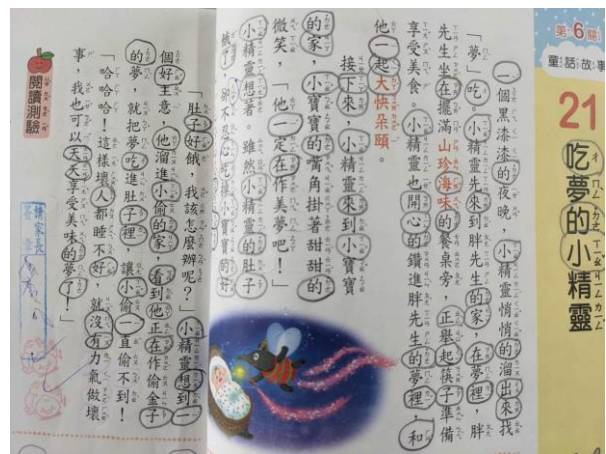 第6關
童話故事
21
吃夢的小精靈
一個黑漆漆的夜晚，小精靈悄悄的溜出來找
「夢」吃。小精靈先來到胖先生的家，在夢裡，胖
先生坐在擺滿山珍海味的餐桌旁，正舉起筷子準備
享受美食。小精靈也開心的鑽進胖先生的夢裡，和
他一起大快朵頤。
接下來，小精靈來到小寶寶
的家，小寶寶的嘴角掛著甜甜的
微笑，「他一定在作美夢吧！」
小精靈想著。雖然小精靈的肚子
餓了，卻不忍心吃掉小寶寶的好
「肚子好餓，我該怎麼辦呢？」小精靈想到一
個好主意，他溜進小偷的家，看到他正在作偷金子
的夢，就把夢吃進肚子裡，讓小偷一直偷不到！
「哈哈哈！這樣壞人都睡不好，就沒有力氣做壞
事，我也可以天天享受美味的夢了！」
閱讀測驗
請家長
簽章